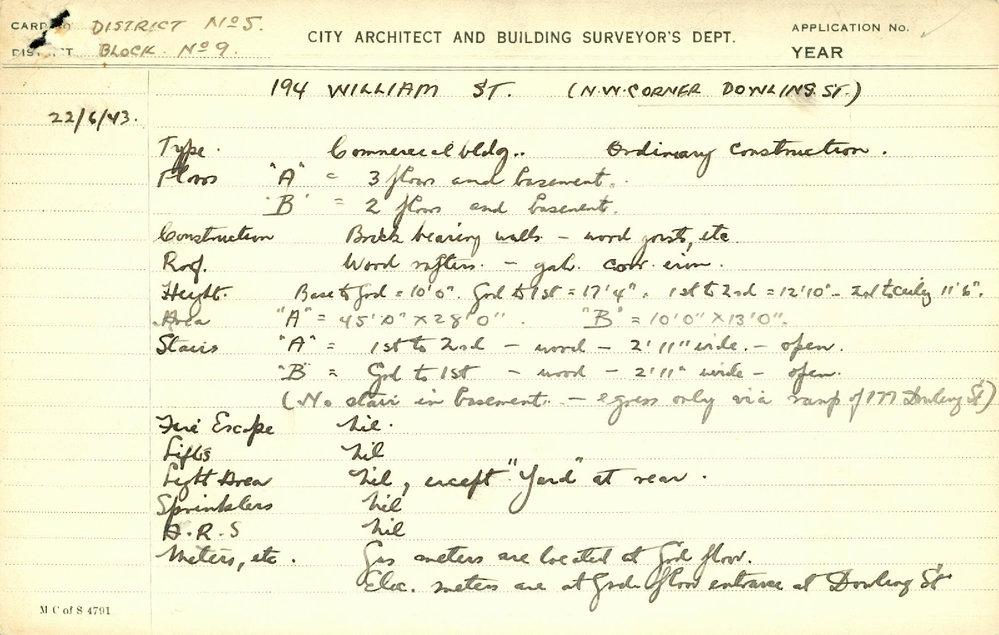 CARD NO DISTRICT No 5.
DISTRICT BLOCK No 9.
CITY ARCHITECT AND BUILDING SURVEYOR'S DEPT.
APPLICATION No.
YEAR
194 WILLIAM ST. (N.W. CORNER DOWLING ST.)
22/6/43.
Type. Commercial bldg.. Ordinary construction.
Floors "A" = 3 floors and basement.
"B" = 2 floors and basement.
Construction Brick bearing walls - wood joists, etc.
Roof. Wood rafters. - galv. corr. iron.
Height. Base to Grd = 10'0". Grd to 1st = 17'4". 1st to 2nd = 12'10" - 2nd to ceiling 11'6".
Area "A" = 45'0" x 28'0". "B" = 10'0" x 13'0".
Stairs "A" = 1st to 2nd - wood - 2'11" wide. - open.
"B" = Grd to 1st - wood - 2'11" wide - open.
(No stair in basement. - egress only via ramp of 177 Dowling St)
Fire Escape Nil.
Lifts Nil
Light Area Nil, except "Yard" at rear.
Sprinklers Nil
A.R.S Nil
Meters, etc. Gas meters are located at Grd floor.
Elec. meters are at Grd. floor entrance at Dowling St
M C of S 4791